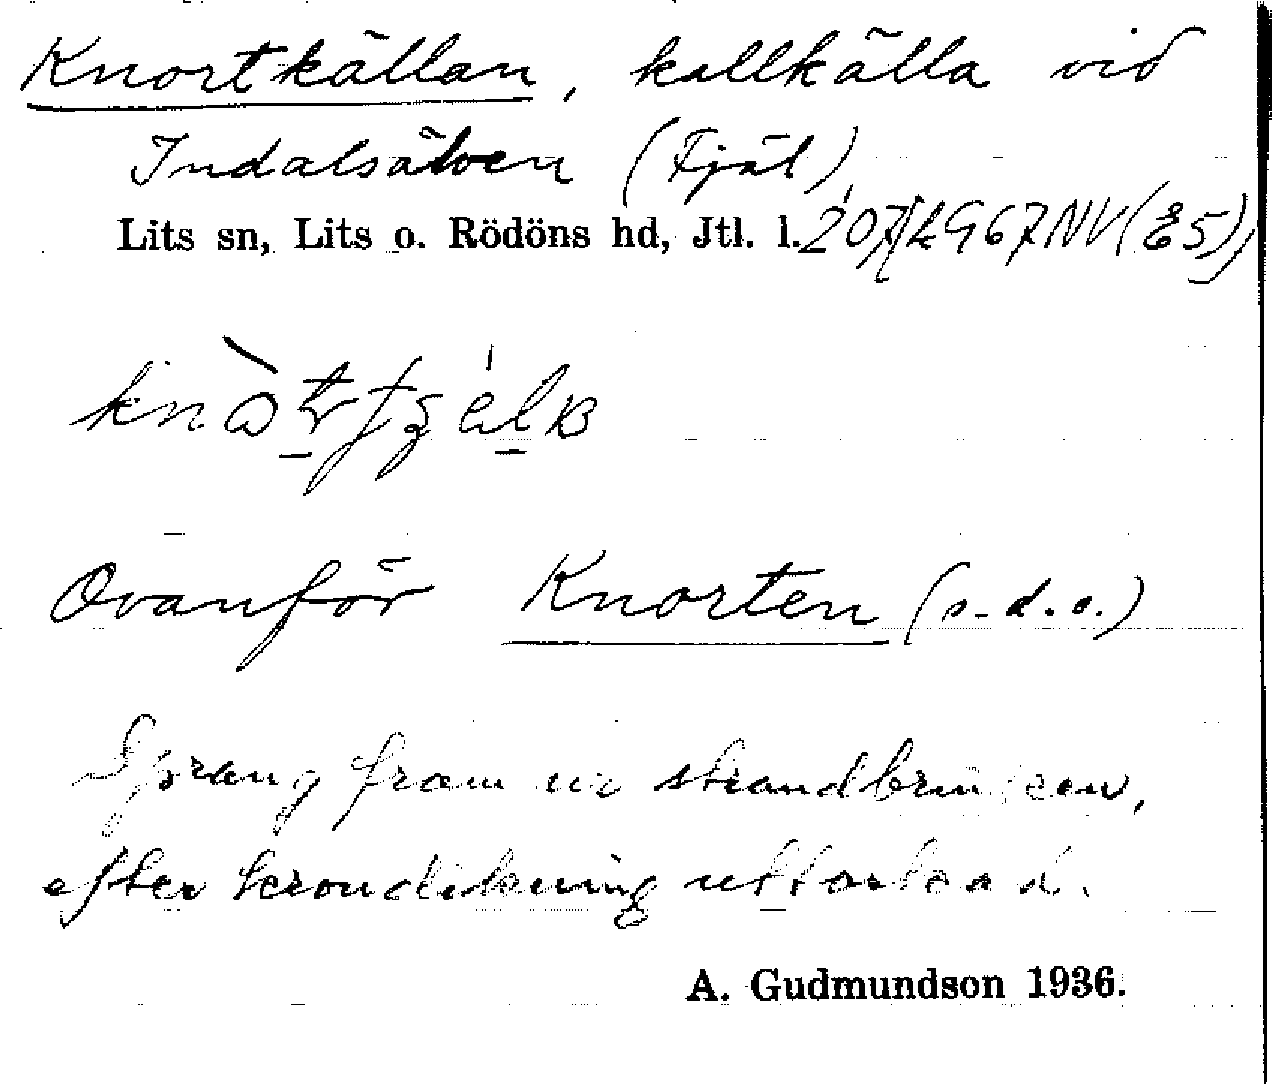 Knortkällan, kallkälla vid
Indalsälven (Fjäl)
Lits sn, Lits o. Rödöns hd, Jtl. l.
Ovanför Knorten (s.d.o.)
Sprang fram ur strandbrinken,
efter krondikning uttorkad.
A. Gudmundson 1936.